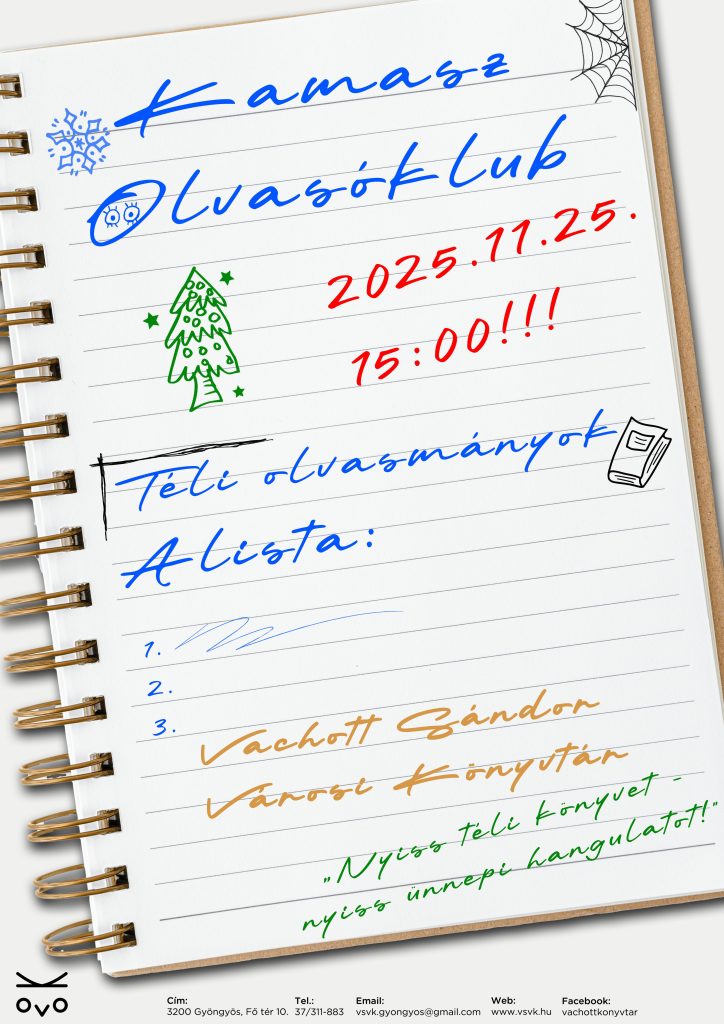 Kamasz
Olvasóklub
2025.11.25.
15:00!!!
Téli olvasmányok
A lista:
1.
2.
3.
Vachott Sándor
Városi Könyvtár
„Nyiss téli könyvet -
nyiss ünnepi hangulatot!"
Cím: Tel.: Email: Web: Facebook:
3200 Gyöngyös, Fő tér 10. 37/311-883 vsvk.gyongyos@gmail.com www.vsvk.hu vachottkonyvtar